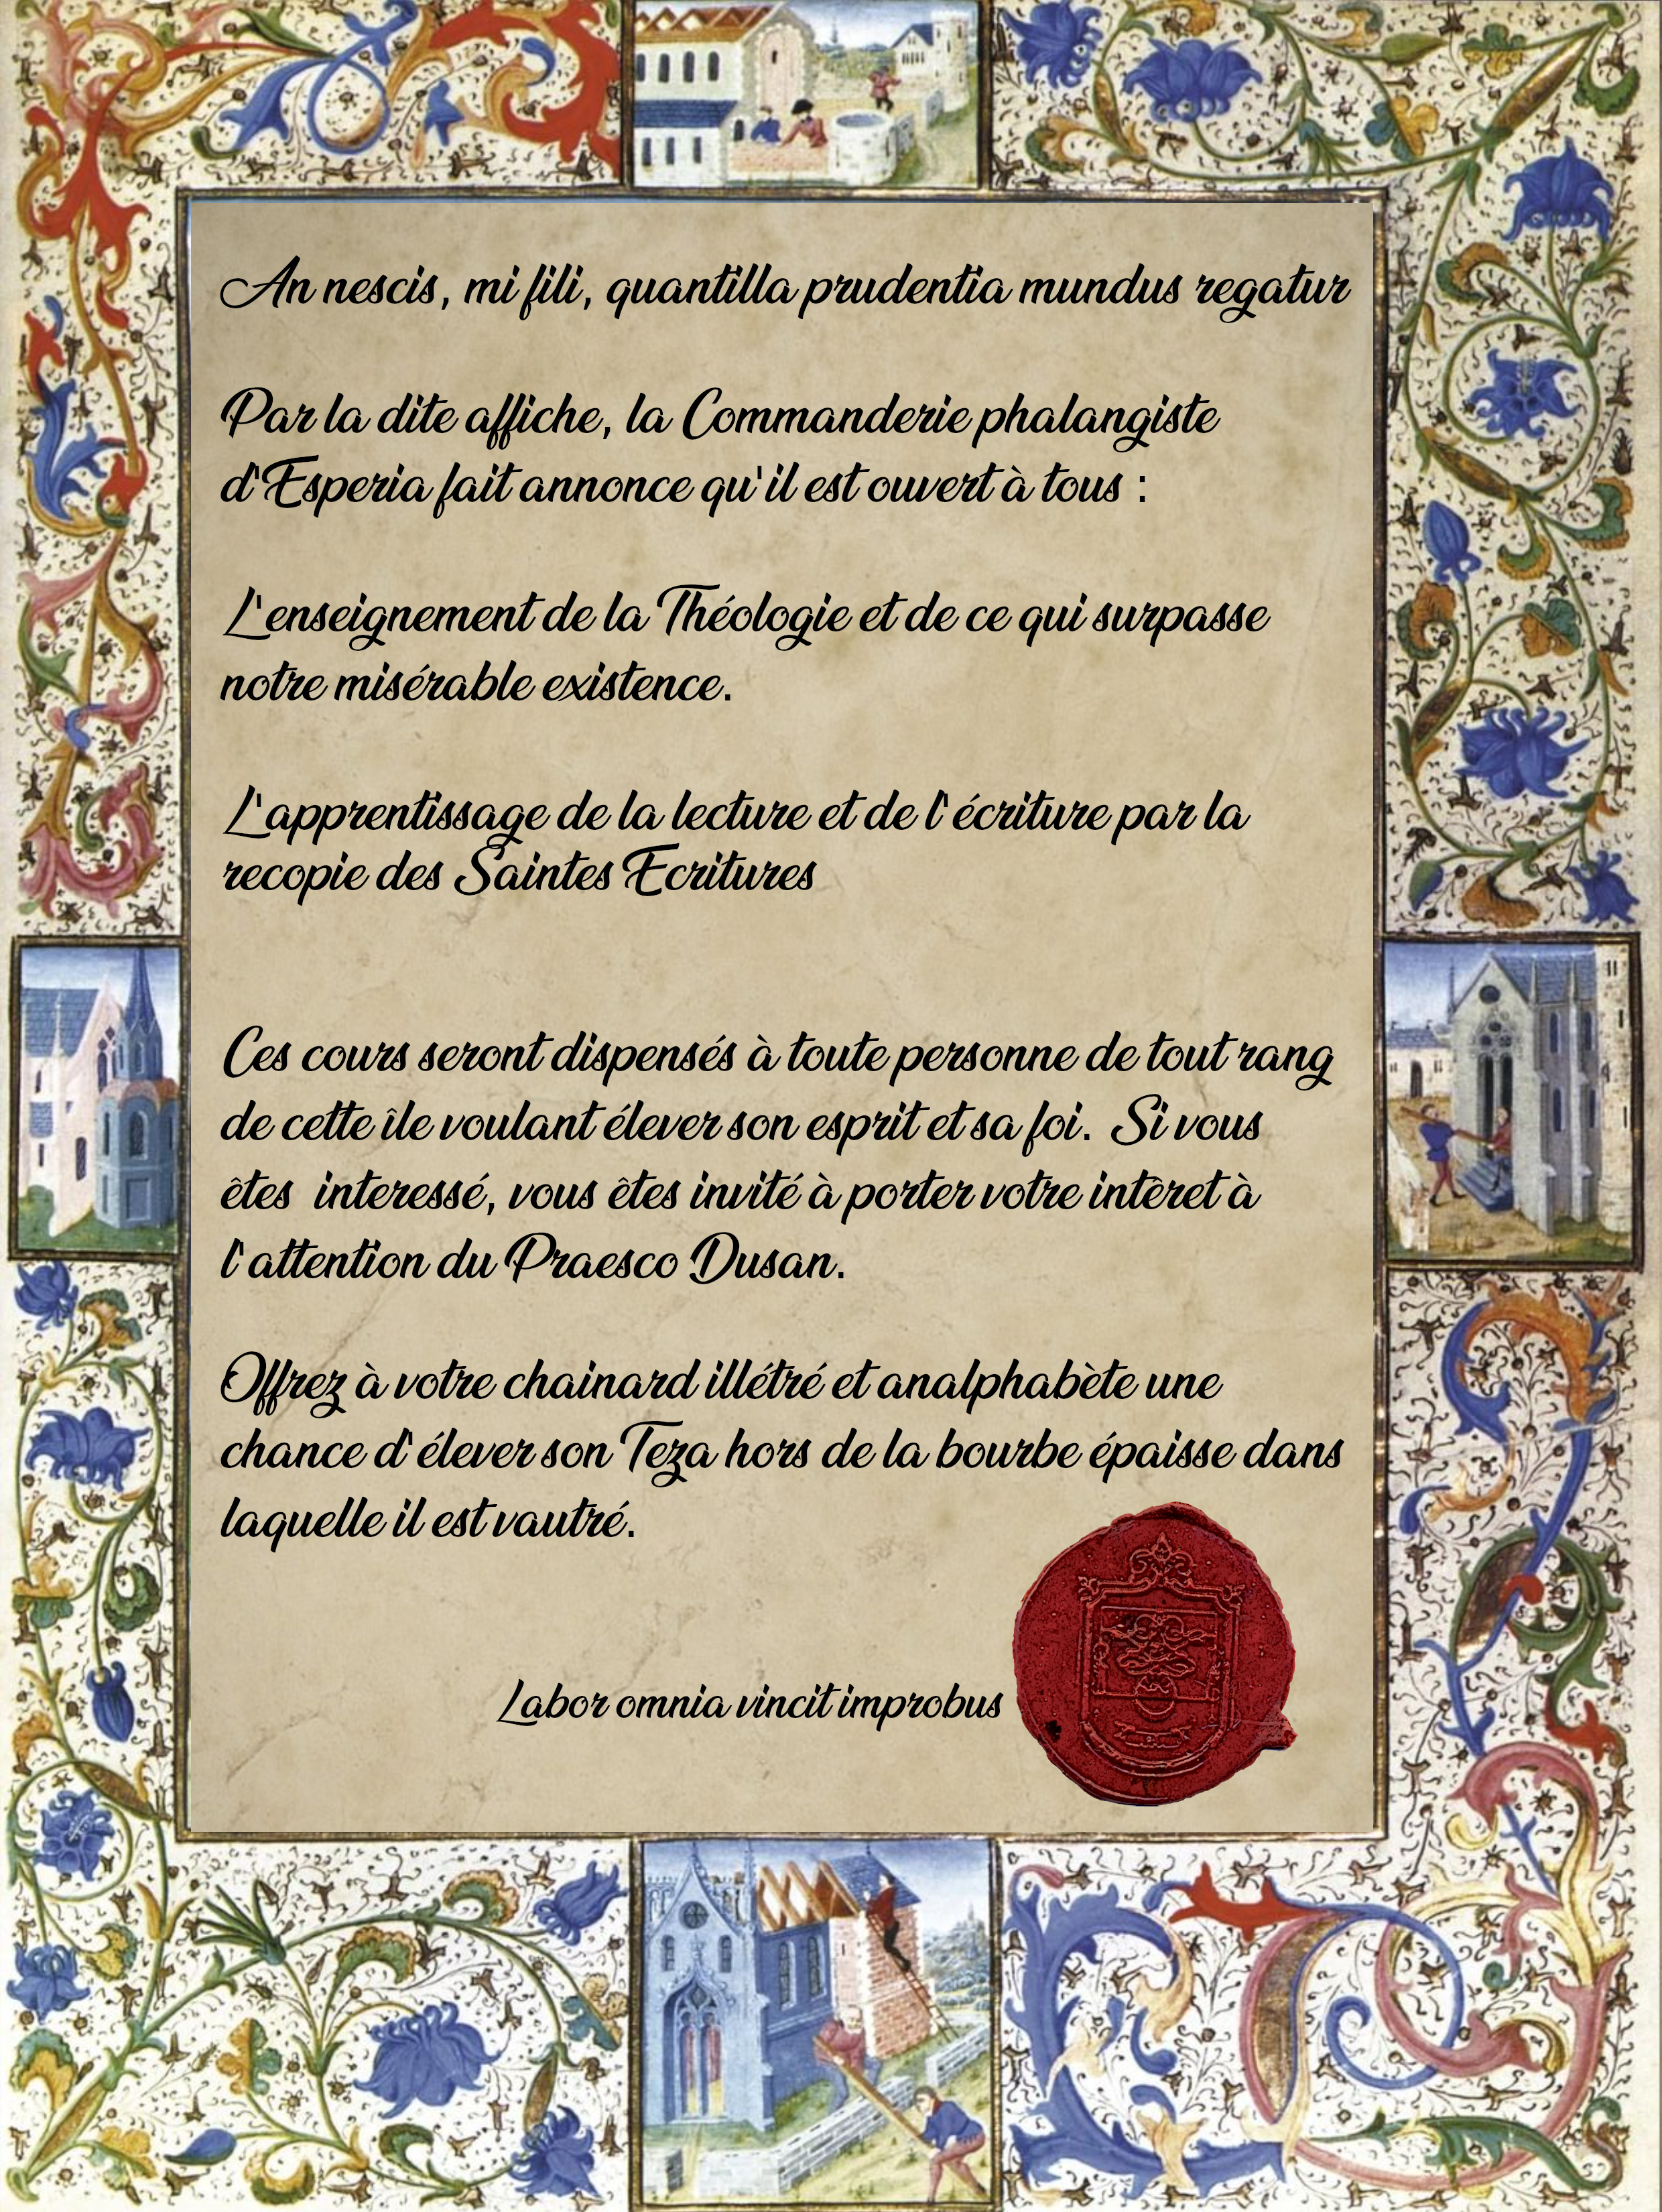 An nescis, mi fili, quantilla prudentia mundus regatur
Par la dite affiche, la Commanderie phalangiste
d'Esperia fait annonce qu'il est ouvert à tous :
L'enseignement de la Théologie et de ce qui surpasse
notre misérable existence.
L'apprentissage de la lecture et de l'écriture par la
recopie des Saintes Ecritures
Ces cours seront dispensés à toute personne de tout rang
de cette île voulant élever son esprit et sa foi. Si vous
êtes interessé, vous êtes invité à porter votre intèret à
l'attention du Praesco Dusan.
Offrez à votre chainard illétré et analphabète une
chance d'élever son Teza hors de la bourbe épaisse dans
laquelle il est vautré.
Labor omnia vincit improbus